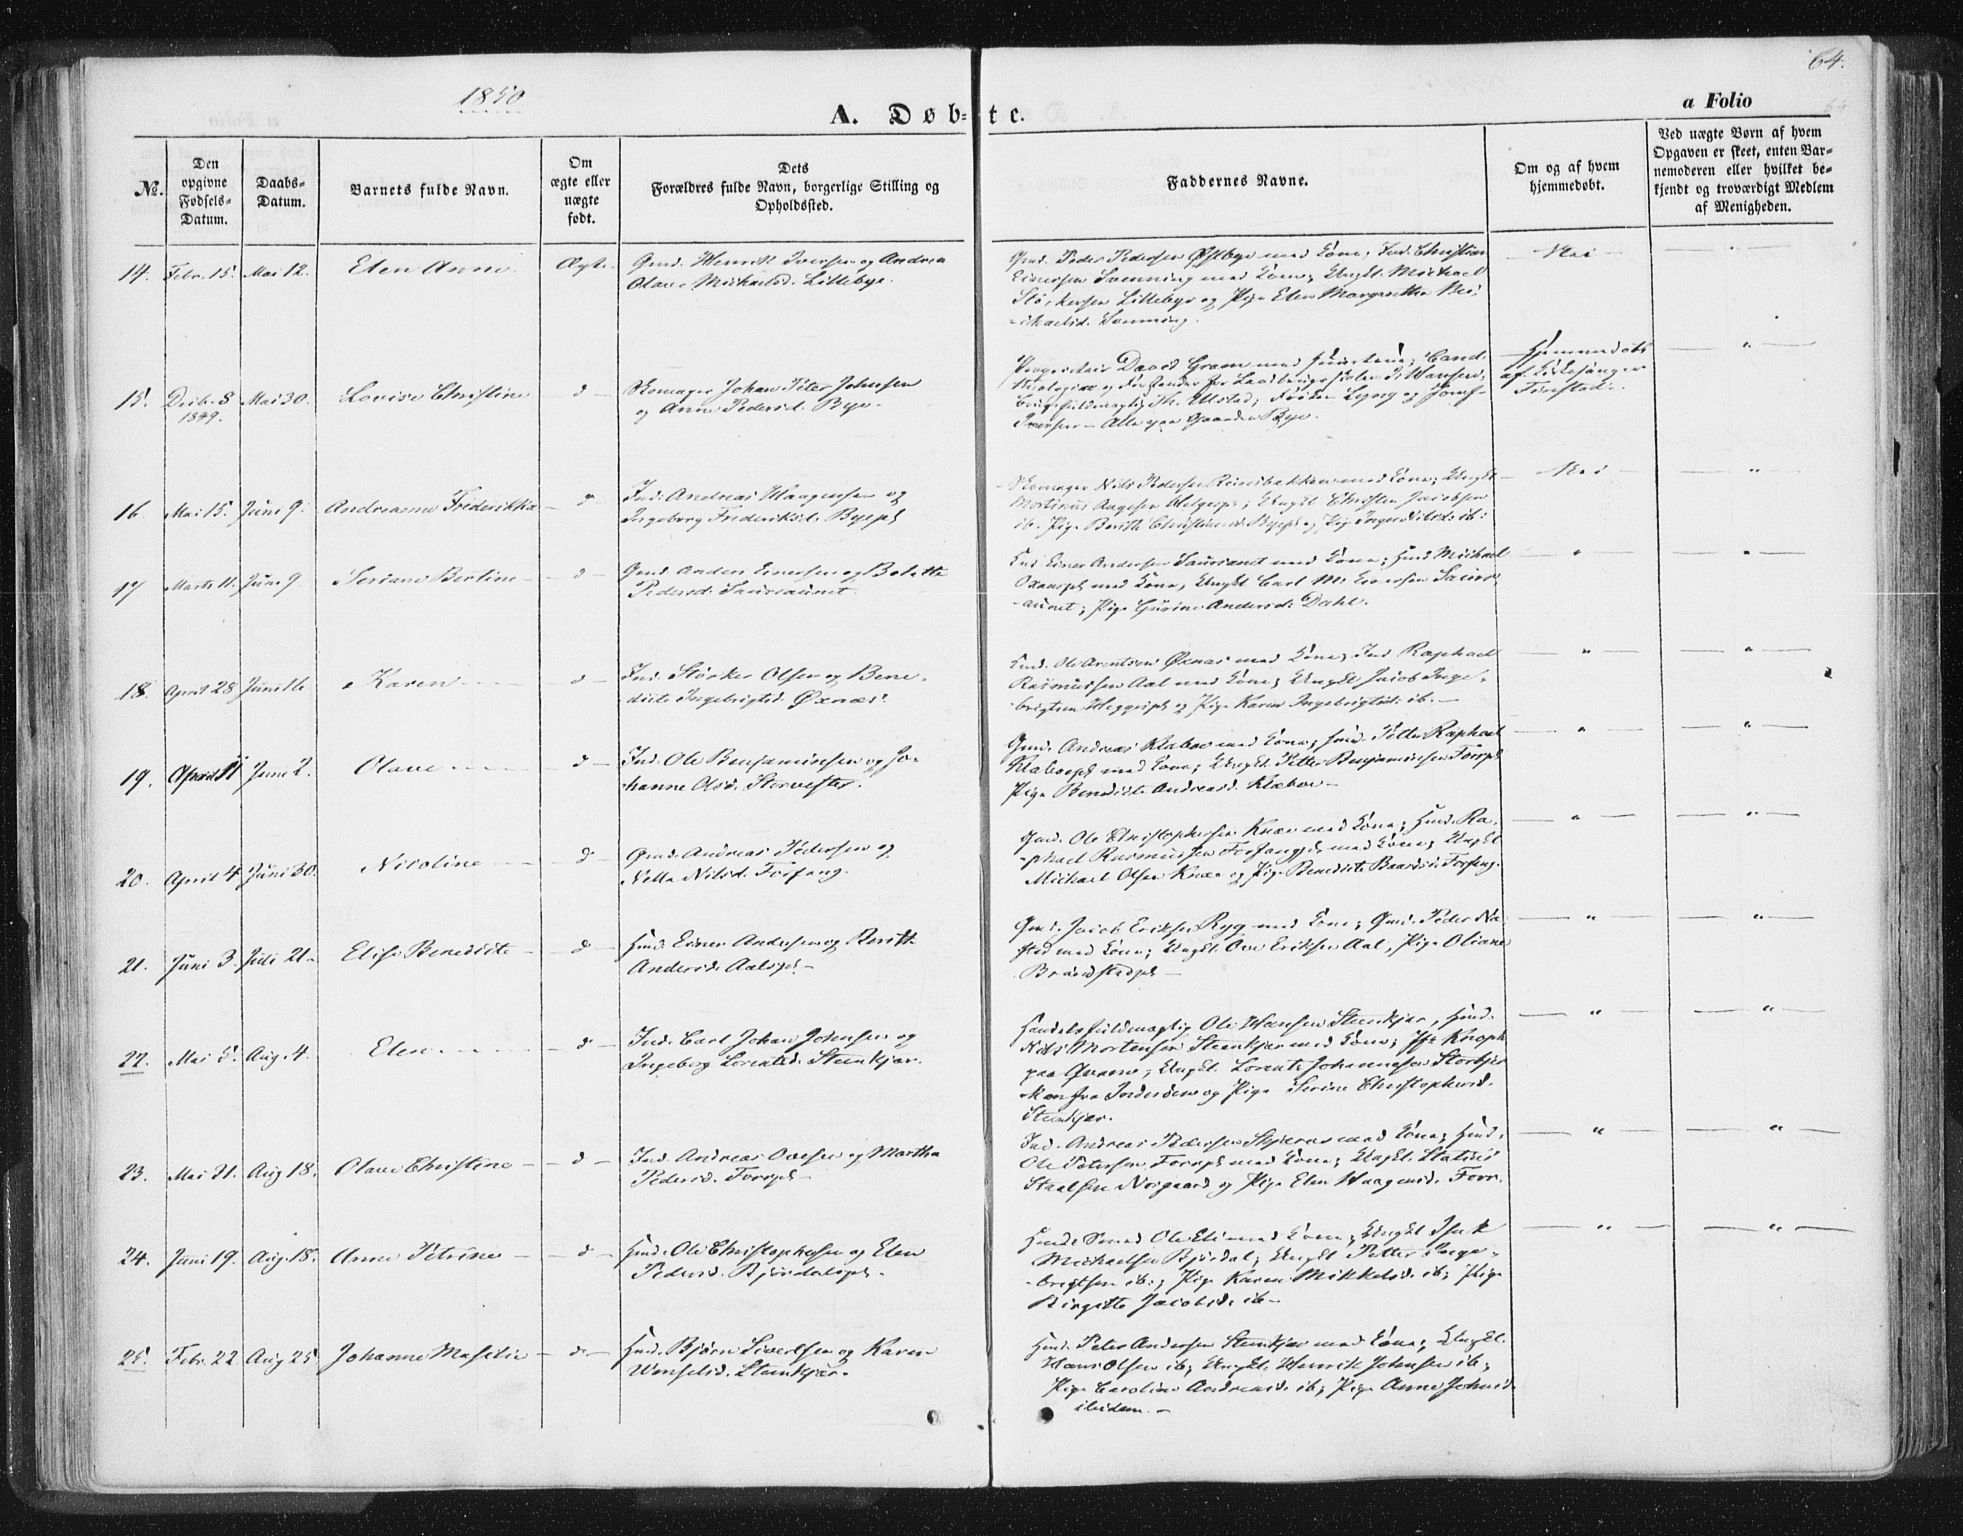 64.
1850
A. Døbte.
a Folio
№.
Den opgivne Fødsels-Datum.
Daabs-Datum.
Barnets fulde Navn.
Om ægte eller uægte født.
Dets Forældres fulde Navn, borgerlige Stilling og Opholdssted.
Faddernes Navne.
Om og af hvem hjemmedøbt.
Ved uægte Børn af hvem Opgaven er skeet, enten Barnemoderen eller hvilket bekjendt og troværdigt Medlem af Menigheden.
14. Febr. 15. Mai 12. Elen Anna Ægte
Gmd. Henrik Iversen og Andrea
Olave Michaelsd. Lillebye.
Gmd. Peder Pedersen Østbye med Kone; Ind. Christian
Einersen Svenning med Kone; Ungk. Michael
Størkersen Lillebye og Pige Elen Margrethe Mi-
chaelsd. Svenning.
Nei
15. Decbr. 8 1849. Mai 30. Lovise Christine d
Skomager Johan Peter Johnsen
og Anne Pedersd. Bye.
Proprietair David Gram med Huustrue; Cand.
Theologiæ og Forstander for Landbrugsskolen P. Hansen;
Th. Ulstad; Frøken Lyng og Jomf.
Iversen - Alle paa Gaarden Bye.
Hjemmedøbt
af Kirkesanger
16. Mai 15. Juni 9. Andreanna Frederikka d
Ind. Andreas Haagensen og
Ingeborg Frederiksd. Byepl.
Skomager Nils Pedersen med Kone; Ungk.
Mortinus Aagesen Helgepl; Ungk. Christen Jacobsen
ib. Pige Berith Christensd. Byepl og Pige Inger Nilsd. ib:
Nei
17 Marts 11. Juni 9. Seriane Bertine d
Gmd. Anders Einersen og Bolette
Pedersd. Saursaunet.
Ind. Einer Andersen Saursaunet med Kone; Husmd. Michael
med Kone, Ungk. Carl M. Einersen Saurs-
aunet; Pige Gurine Andersd. Dahl.
18. April 28 Juni 16 Karen d
Ind. Størker Olsen og Bene-
dicte Ingebrigtsd. Øxnæs.
Gmd. Ole Arentsen Øxnæs med Kone; Ind. Raphael
Rasmussen Aal med Kone; Ungk. Jacob Inge-
brigtsen Heggepl og Pige Karen Ingebrigtsd. ib.
19. April 11 Juni 2. Olava d
Ind. Ole Benjaminsen og Jo-
hanne Olsd.
Gmd. Andreas Klaboe med Kone; Husmd. Petter Raphael
Klaboepl med Kone; Ungk. Petter Benjaminsen Forpl
Pige Benedicte Andreasd. Klaboe
20. April 4. Juni 30. Nicoline d
Gmd. Andreas Pedersen og
Nella Nilsd. Forfang.
Gmd. Ole Christophersen Knæe med Kone; Husmd. Ra-
phael Rasmussen Forfangpl med Kone; Ungk.
Michael Olsen Knæe og Pige Benedicte Baardsd. Forfang.
21. Juni 3. Juli 21. Elise Benedicte d
Husmd. Einer Andersen og Berith
Andersd. Aalspl
Gmd. Jacob Eriksen Ryg med Kone; Gmd. Peder Na-
sted med Kone; Ungk. Ove Eriksen Aal, Pige Oliane
Brandstadpl
22. Mai 5. Aug. 4. Elen d
Ind. Carl Johan Johnsen og
Ingeborg Lorentsd. Steenkjær.
Handelsfuldmægtig Ole Hansen Steenkjær, Husmd.
Nils Mortensen Steenkjær med Kone; Jfr Knoph
paa Qvam; Ungk. Lorents Johannesen Storkjer-
Man fra Inderøen og Pige Serine Christophersd.
Steenkjær.
23. Mai 21. Aug 18. Olave Christine d
Ind. Andreas Ovesen og Martha
Pedersd. Forpl
Ind. Andreas Pedersen Skjeraas med Kone; Husmd.
Ole Petersen Forrpl med Kone; Ungk.
Staalsen Norgaard og Pige Elen Haagensd. Forr.
24. Juni 19. Aug. 18. Anne Petrine d
Husmd. Ole Christophersen og Elen
Pedersd. Bjørdalspl.
Ole Eli med Kone; Ungk. Isak
Michaelsen Bjørdal; Ungk. Petter Inge-
brigtsen ib.; Pige Karen Mikkelsd. ib; Pige
Birgitte Jacobsd. ib
25. Febr. 22 Aug 25 Johanna Maselie d
Husmd. Bjørn Sivertsen og Karen
Wenselsd. Steenkjær.
Husmd. Peter Andersen Steenkjær med Kone; Ungk.
Hans Olsen ib; Ungk. Henrik Johnsen ib;
Pige Caroline Andreasd. ib; Pige Anne Johnsd.
ibidem.